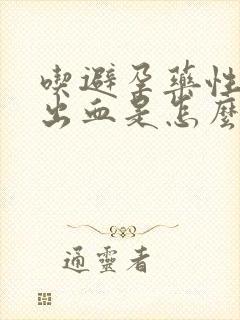 喫避孕藥性
出血是怎麼
通靈者